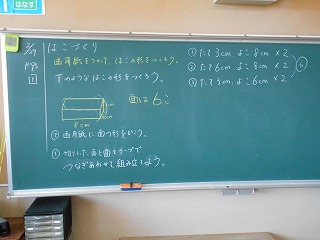 はなす
はこづくり
画用紙をつかって、はこの形をつくろう。
下のようなはこの形をつくろう。
8cm
面は6こ
① たて3cm、よこ8cm ×2
② たて6cm、よこ8cm ×2
③ たて3cm、よこ6cm ×2
6
画用紙に面の形をかく。
切りとった面と面をテープで
つなぎあわせて組み立てよう。